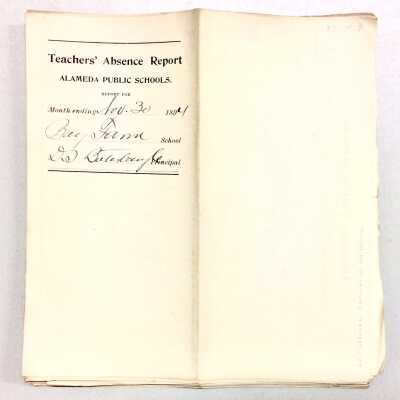 Teachers' Absence Report
ALAMEDA PUBLIC SCHOOLS.
REPORT FOR
Month ending Nov. 30 1894
Bay Farm
School
Principal